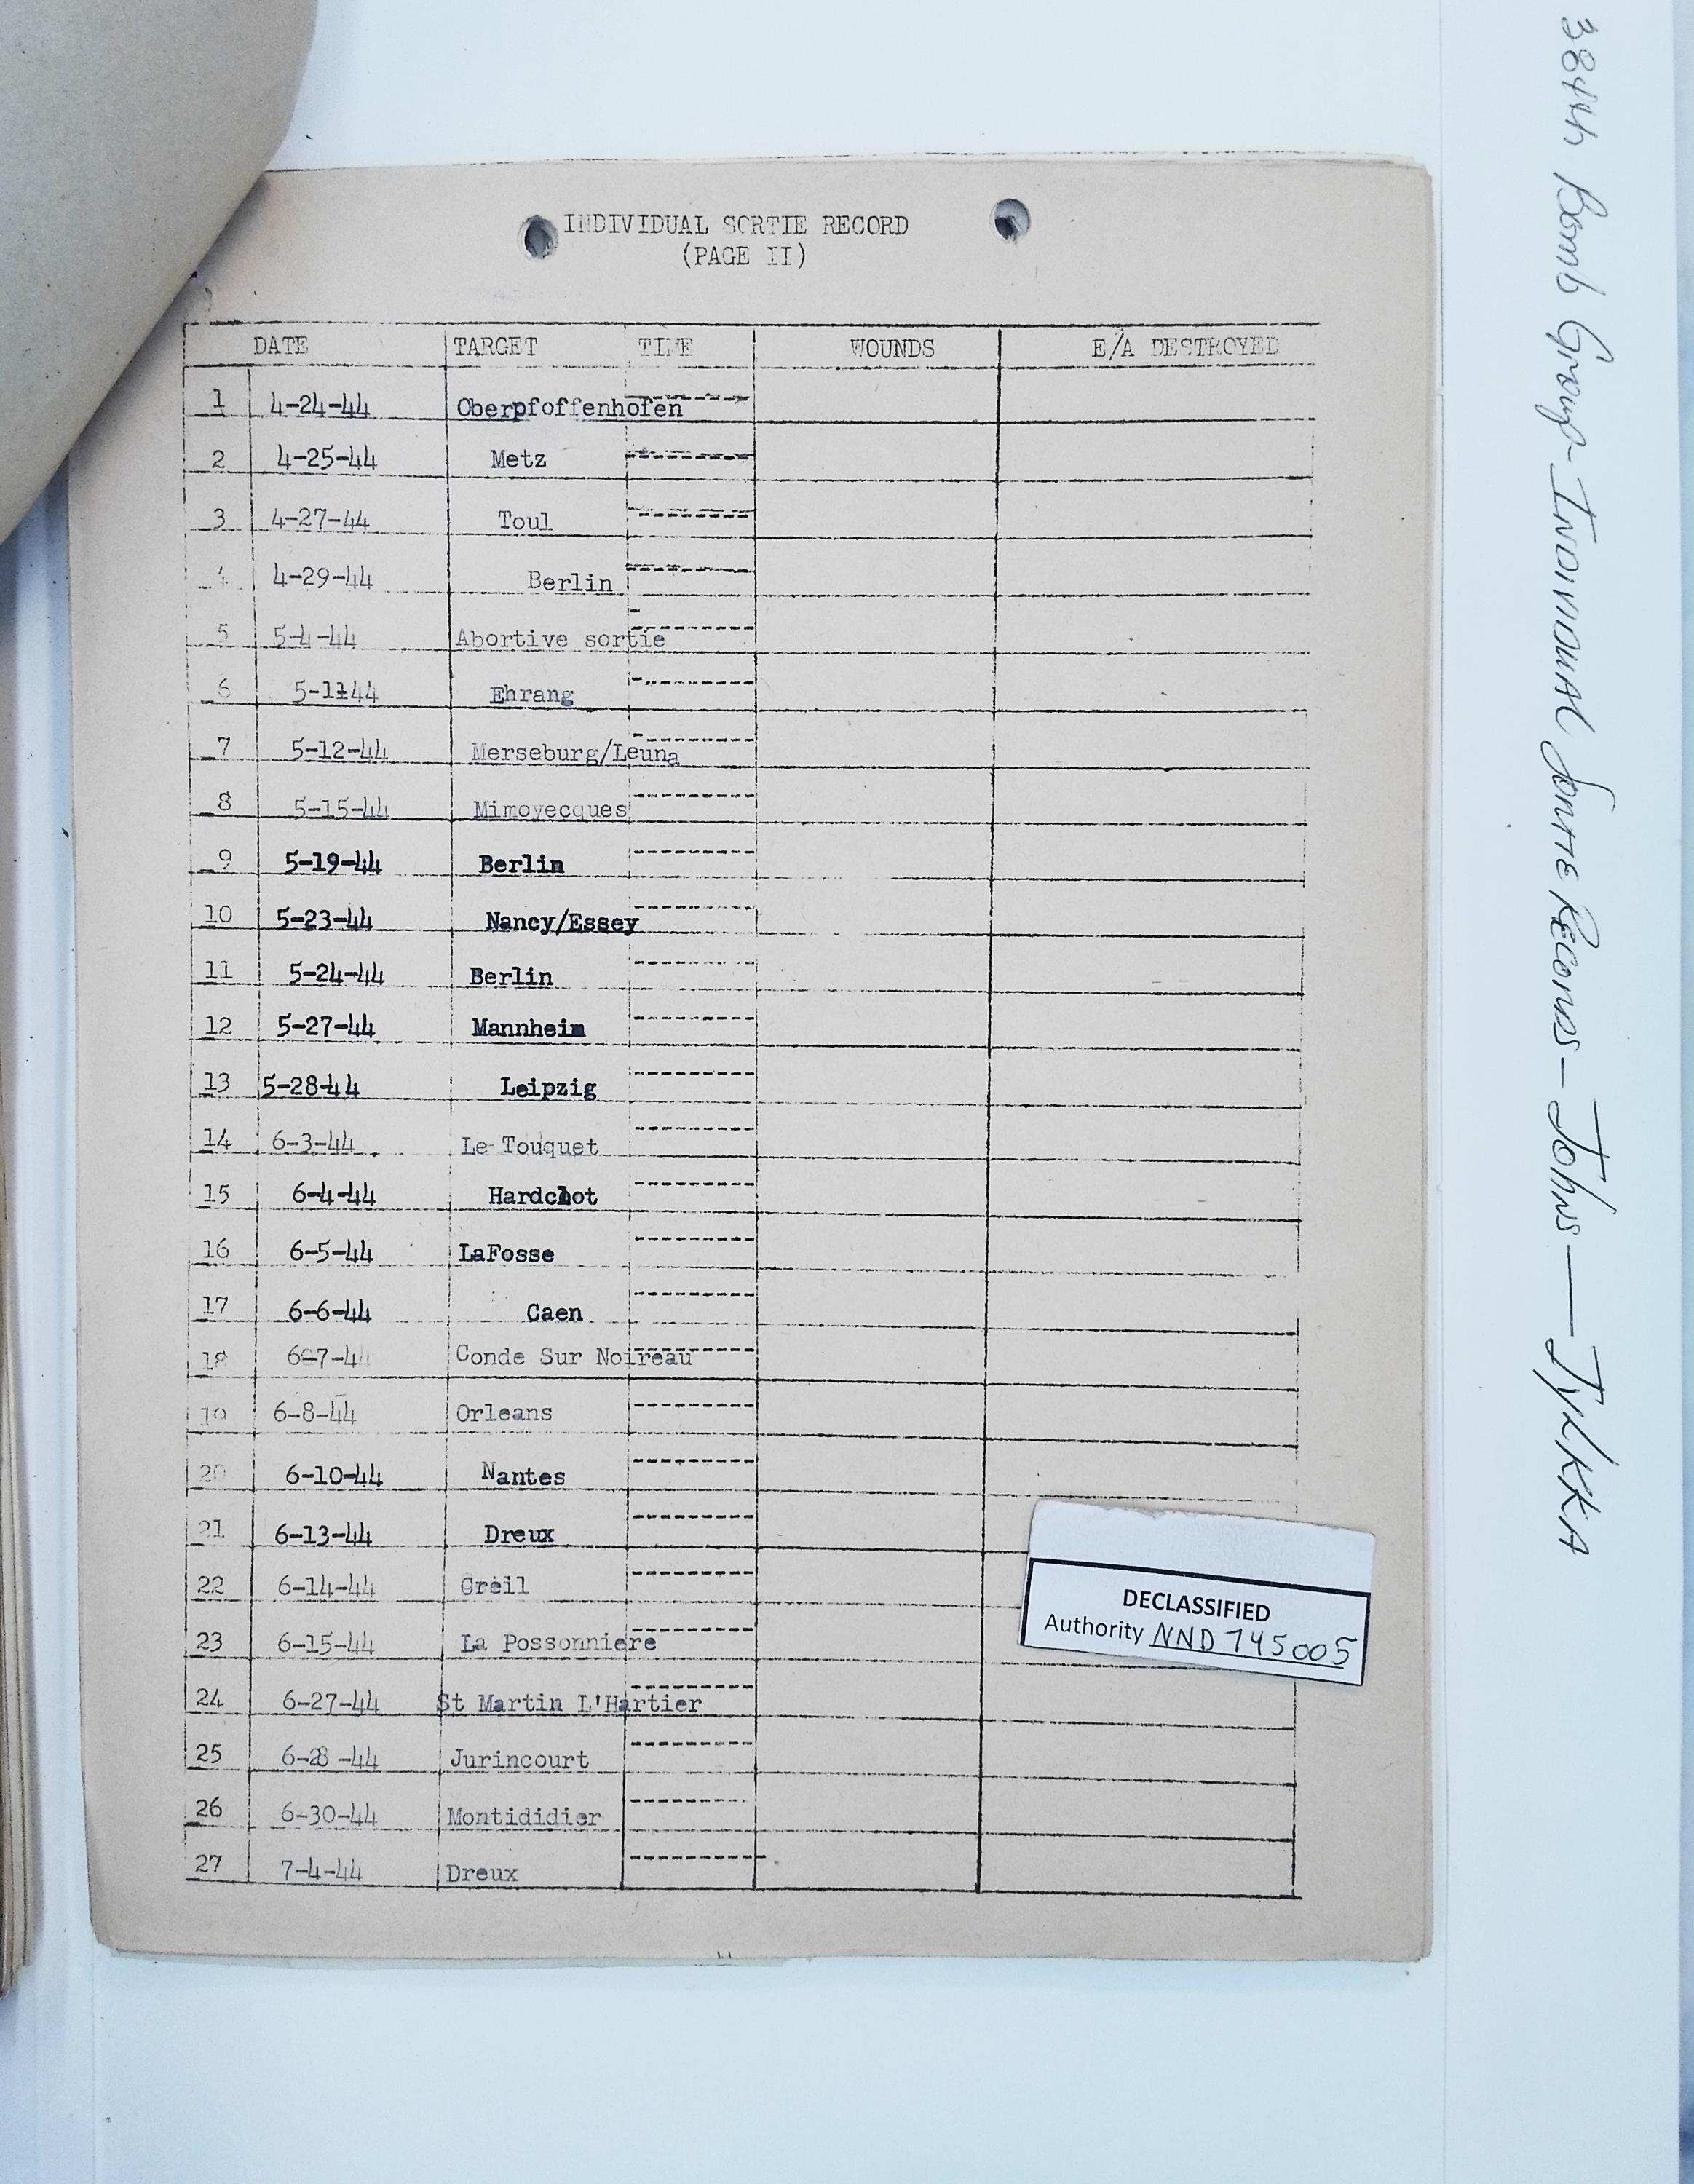 INDIVIDUAL SORTIE RECORD
(PAGE II)
DATE TARGET TIME WOUNDS E/A DESTROYED
1 4-24-44 Oberpfoffenhofen
2 4-25-44 Metz
3 4-27-44 Toul
4 4-29-44 Berlin
5 5-4-44 Abortive sortie
6 5-1144 Ehrang
7 5-12-44 Merseburg/Leuna
8 5-15-44 Mimoyecques
9 5-19-44 Berlin
10 5-23-44 Nancy/Essey
11 5-24-44 Berlin
12 5-27-44 Mannheim
13 5-28-44 Leipzig
14 6-3-44 Le Touquet
15 6-4-44
16 6-5-44 LaFosse
17 6-6-44 Caen
18 6-7-44 Conde Sur Noireau
19 6-8-44 Orleans
20 6-10-44 Nantes
21 6-13-44 Dreux
22 6-14-44 Creil
23 6-15-44 La Possonniere
24 6-27-44 St Martin L'Hartier
25 6-28-44 Jurincourt
26 6-30-44 Montididier
27 7-4-44 Dreux
DECLASSIFIED
Authority NND 745005
384th Bomb Group-Individual Sortie Records-Johns-Tylkka